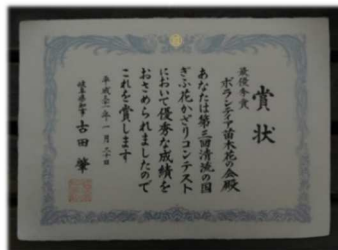 賞状
最優秀賞
ボランティア苗木花の会殿
あなたは第三回清流の国
ぎふ花かざりコンテスト
において優秀な成績を
おさめられましたので
これを賞します
平成三一年一月二十日
岐阜県知事 古田 肇